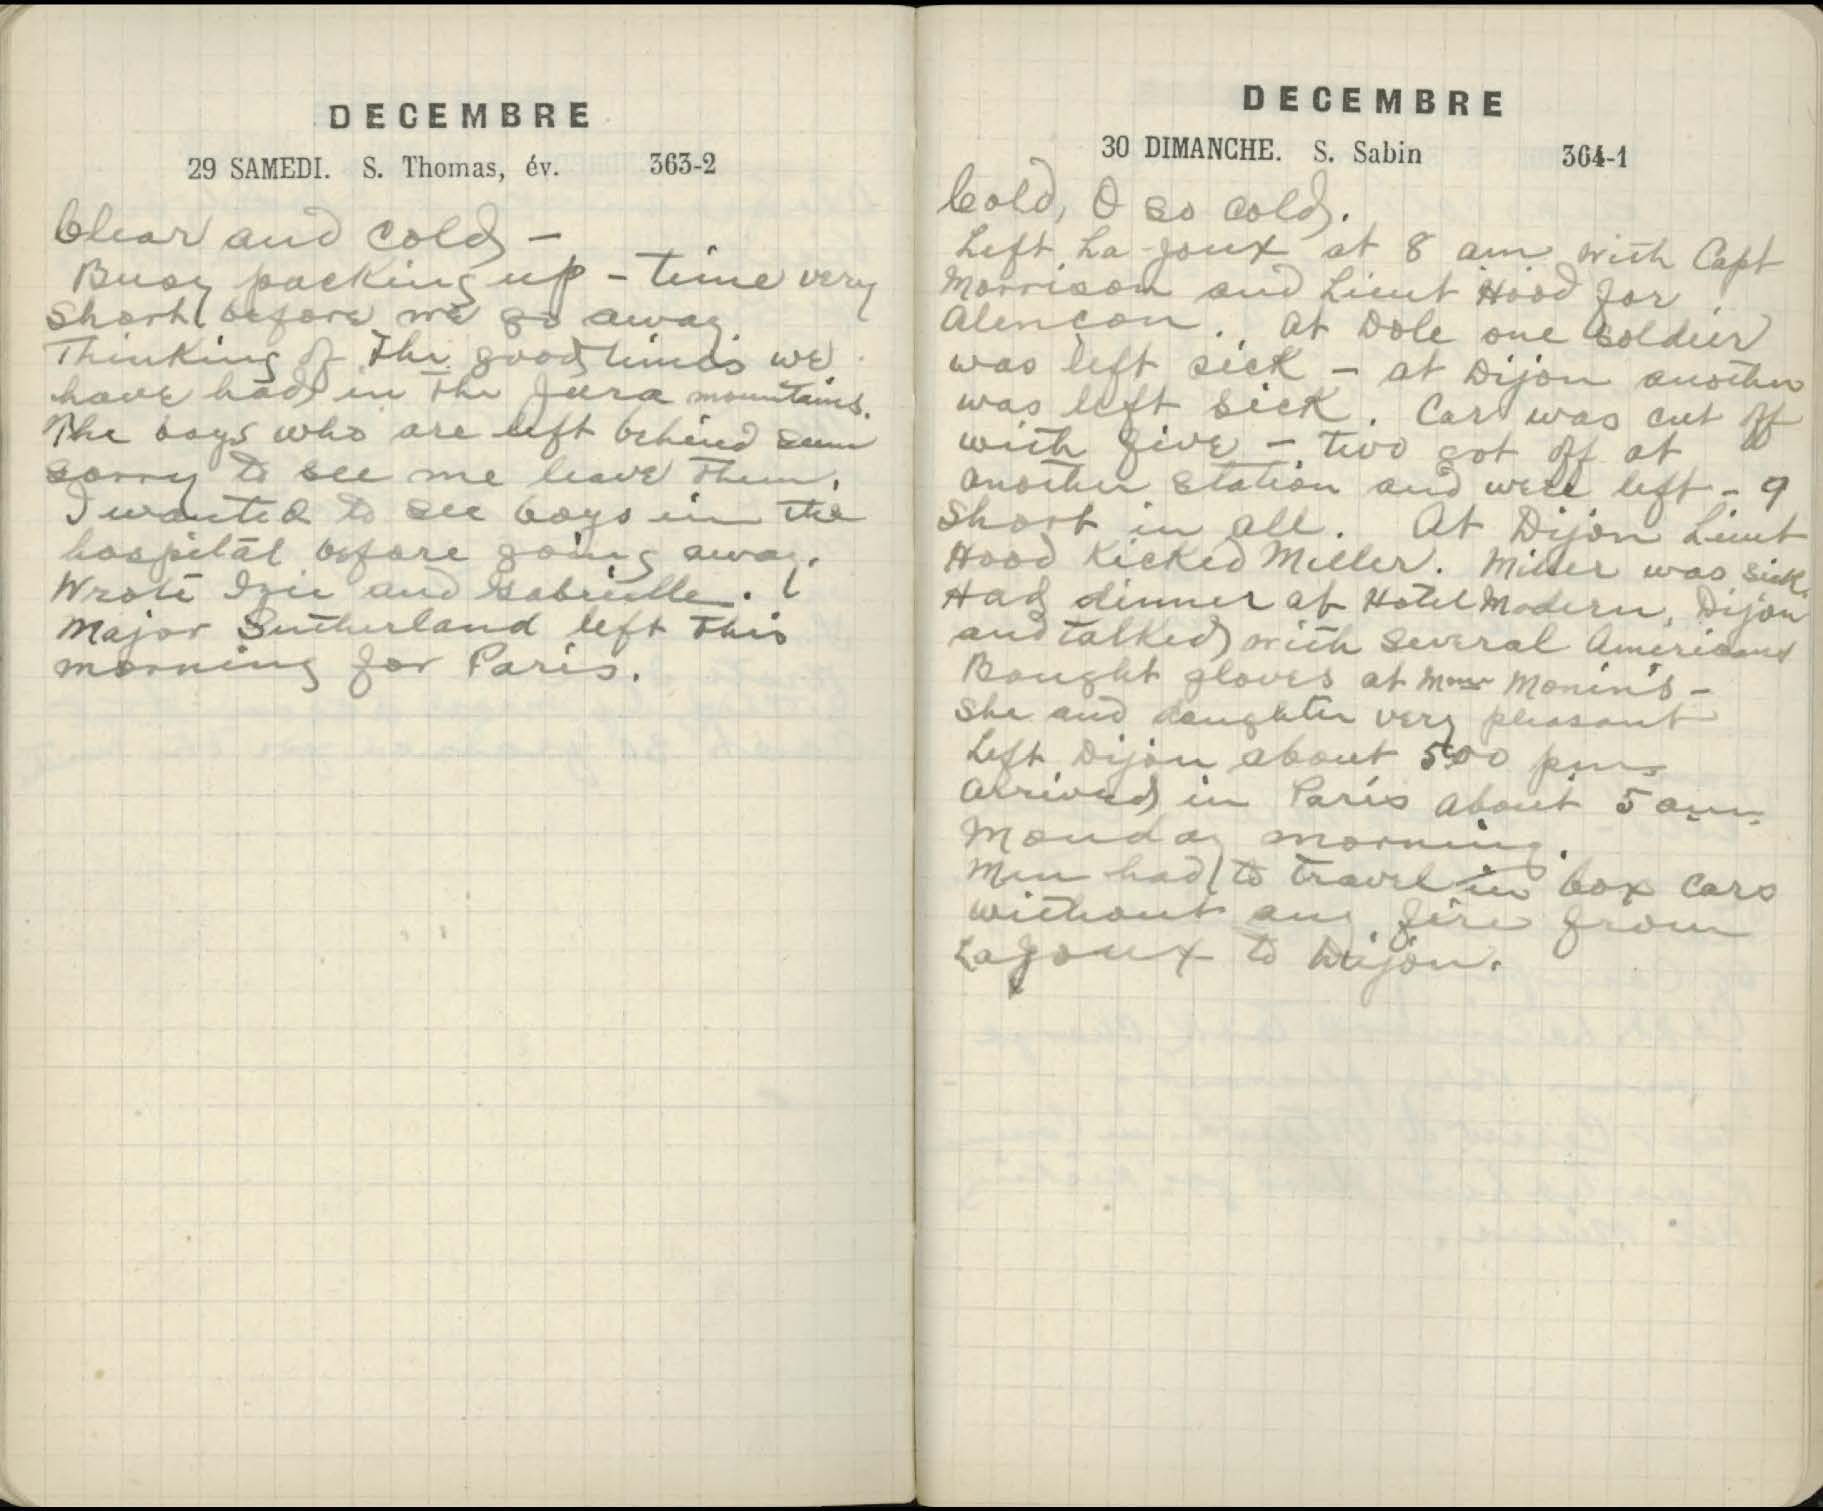 DECEMBRE
29 SAMEDI. S. Thomas, év. 363-2
Clear and cold -
Busy packing up - time very
short before we go away.
Thinking of the good times we
have had in the Jura mountains.
The boys who are left behind seem
sorry to see me leave them.
I wanted to see boys in the
hospital before going away.
Wrote Izie and Gabrielle.
Major Sutherland left this
morning for Paris.
DECEMBRE
30 DIMANCHE. S. Sabin 364-1
Cold, O so cold.
Left La Joux at 8 am with Capt
Morrison and Lieut Hood for
Alençon. At Dole one soldier
was left sick - at Dijon another
was left sick. Car was cut off
with five - two got off at
another station and were left - 9
short in all. At Dijon Lieut
Hood kicked Miller. Miller was sick.
Had dinner at Hotel Modern, Dijon
and talked with several Americans
Bought gloves at Mme Monin's -
She and daughter very pleasant
Left Dijon about 500 pm
Arrived in Paris about 5 am
Monday morning.
Men had to travel in box cars
without any fire from
La Joux to Dijon.